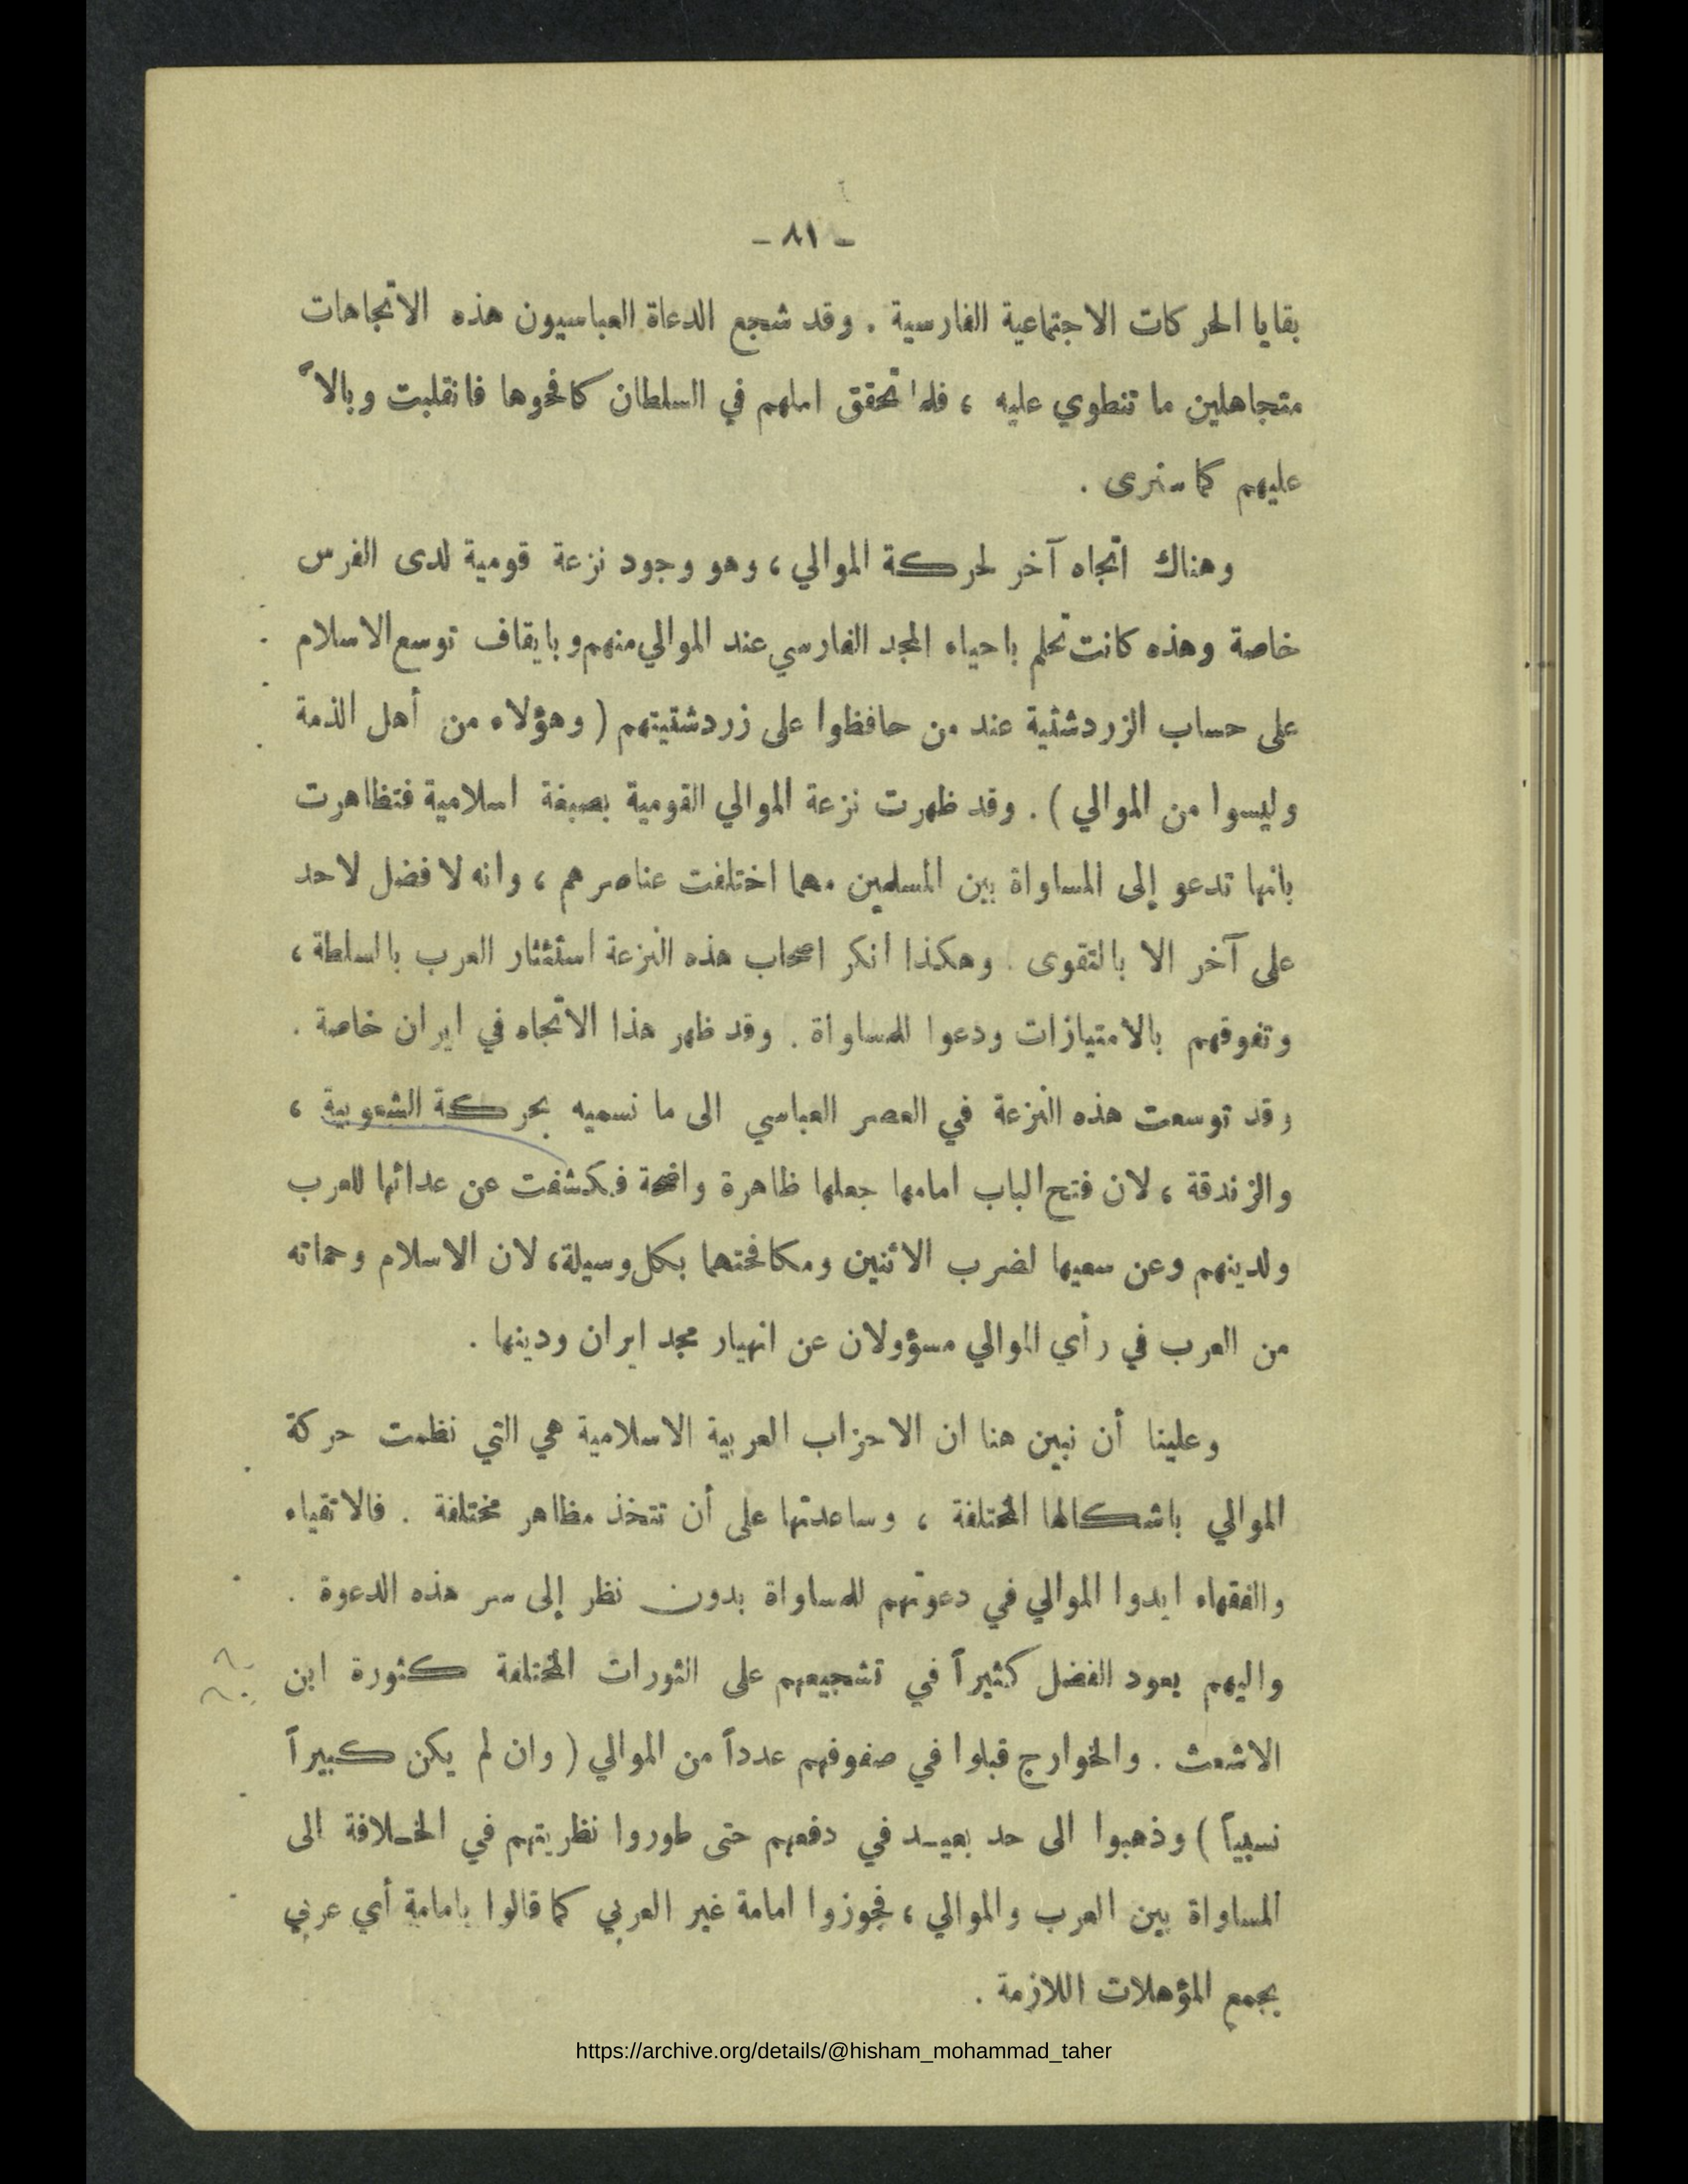 - ٨١ -
بقايا الحركات الاجتماعية الفارسية . وقد شجع الدعاة العباسيون هذه الاتجاهات
متجاهلين ما تنطوي عليه ، فلما تحقق املهم في السلطان كافحوها فانقلبت وبالاً
عليهم كما سنرى .
وهناك اتجاه آخر لحركة الموالي ، وهو وجود نزعة قومية لدى الفرس
خاصة وهذه كانت تحلم باحياء المجد الفارسي عند الموالي منهم و بايقاف توسع الاسلام
على حساب الزردشتية عند من حافظوا على زردشتيتهم ( وهؤلاء من أهل الذمة
وليسوا من الموالي ) . وقد ظهرت نزعة الموالي القومية بصبغة اسلامية فتظاهرت
بانها تدعو إلى المساواة بين المسلمين مهما اختلفت عناصرهم ، وانه لا فضل لاحد
على آخر الا بالتقوى . وهكذا انكر اصحاب هذه النزعة استئثار العرب بالسلطة ،
وتفوقهم بالامتيازات ودعوا للمساواة . وقد ظهر هذا الاتجاه في ايران خاصة .
وقد توسعت هذه النزعة في العصر العباسي الى ما نسميه بحركة الشعوبية ،
والزندقة ، لان فتح الباب امامها جعلها ظاهرة واضحة فكشفت عن عدائها للعرب
ولدينهم وعن سعيها لضرب الاثنين ومكافحتهما بكل وسيلة، لان الاسلام وحماته
من العرب في رأي الموالي مسؤولان عن انهيار مجد ايران ودينها .
وعلينا أن نبين هنا ان الاحزاب العربية الاسلامية هي التي نظمت حركة
الموالي باشكالها المختلفة ، وساعدتها على أن تتخذ مظاهر مختلفة . فالاتقياء
والفقهاء ايدوا الموالي في دعوتهم للمساواة بدون نظر إلى سر هذه الدعوة .
واليهم يعود الفضل كثيراً في تشجيعهم على الثورات المختلفة كثورة ابن
الاشعث . والخوارج قبلوا في صفوفهم عدداً من الموالي ( وان لم يكن كبيراً
نسبياً ) وذهبوا الى حد بعيد في دفعهم حتى طوروا نظريتهم في الخلافة الى
المساواة بين العرب والموالي ، فجوزوا امامة غير العربي كما قالوا بامامة أي عربي
يجمع المؤهلات اللازمة .
https://archive.org/details/@hisham_mohammad_taher